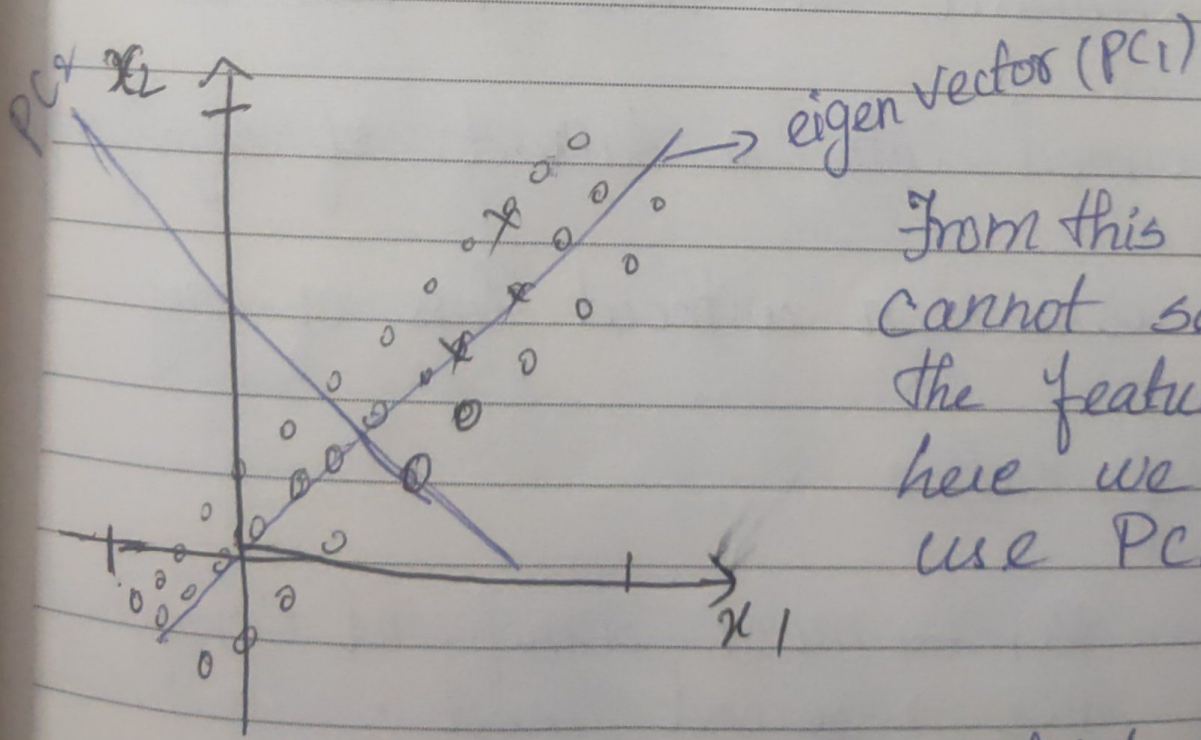 PC2 x2
eigen vector (PC1)
From this
cannot
the
here we
use PC
x1